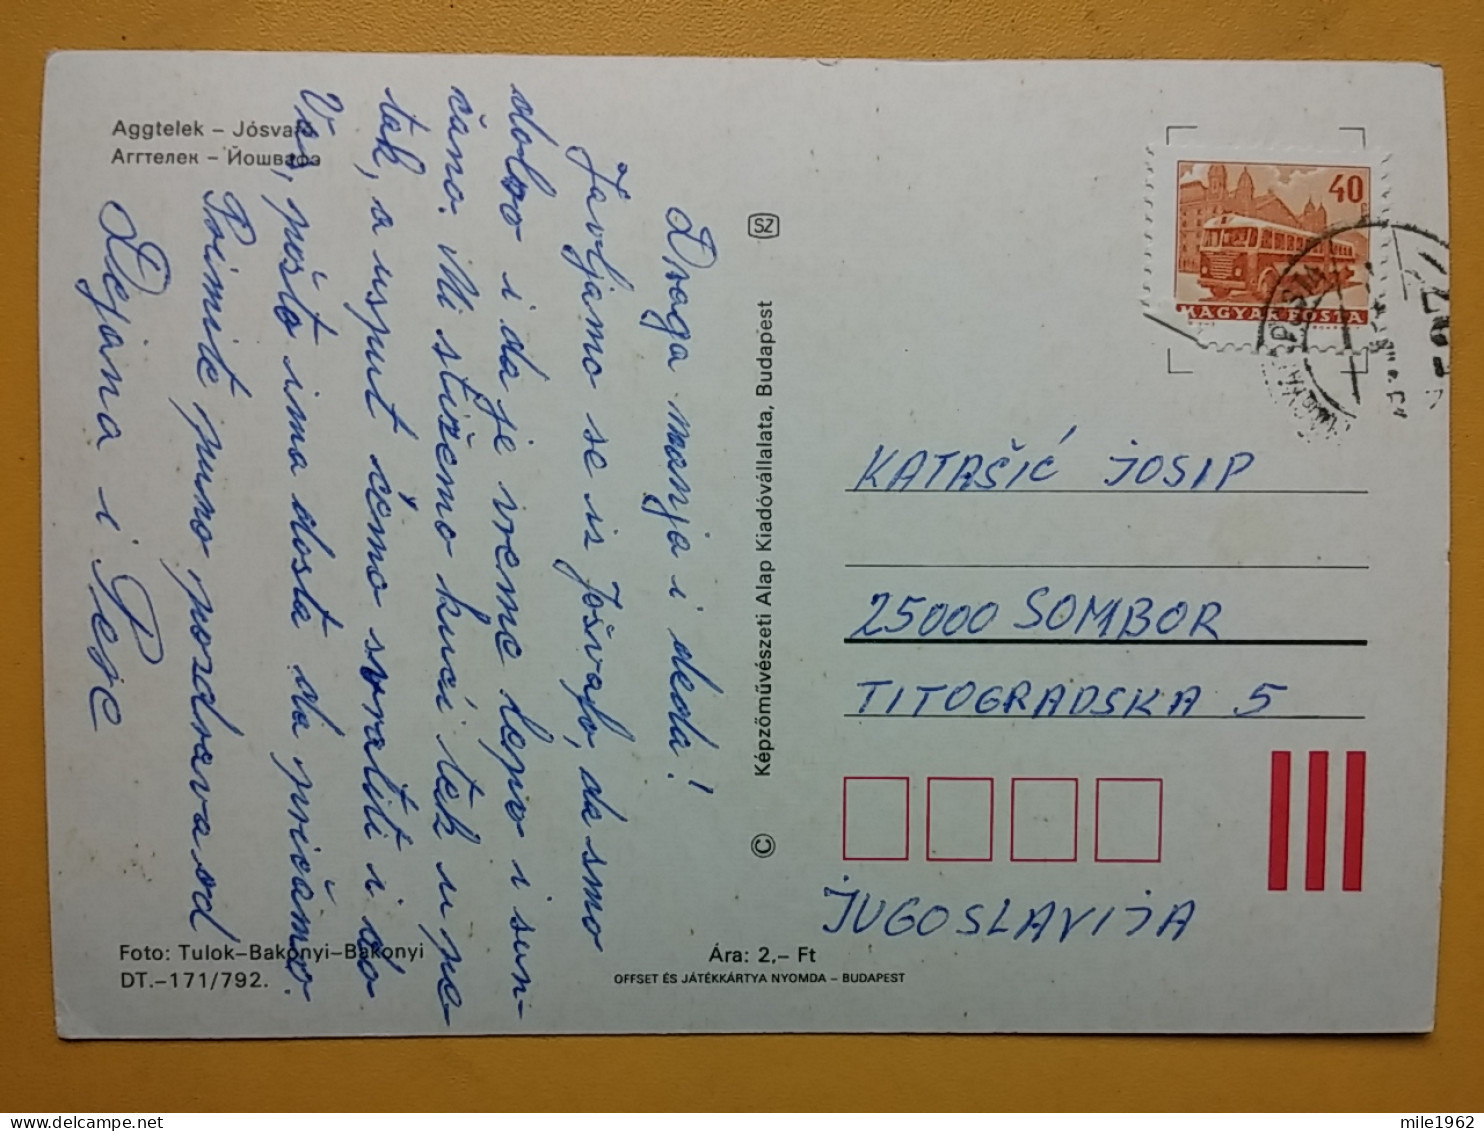 Aggtelek – Jósvafő
Аггтелек – Йошвафэ
Draga manja i deda!
Javljamo se iz Jošvafo, da smo
dobro i da je vreme lepo i sun-
čano. Mi stižemo kući tek u pe-
tak, a usput ćemo svratiti i do
Vas, pošto ima dosta da pričamo.
Primite puno pozdrava od
Dejana i Pere
Foto: Tulok–Bakonyi–Bakonyi
DT.–171/792.
SZ
© Képzőművészeti Alap Kiadóvállalata, Budapest
Ára: 2,– Ft
OFFSET ÉS JÁTÉKKÁRTYA NYOMDA – BUDAPEST
40
MAGYAR POSTA
KATAŠIĆ JOSIP
25000 SOMBOR
TITOGRADSKA 5
JUGOSLAVIJA
mile1962